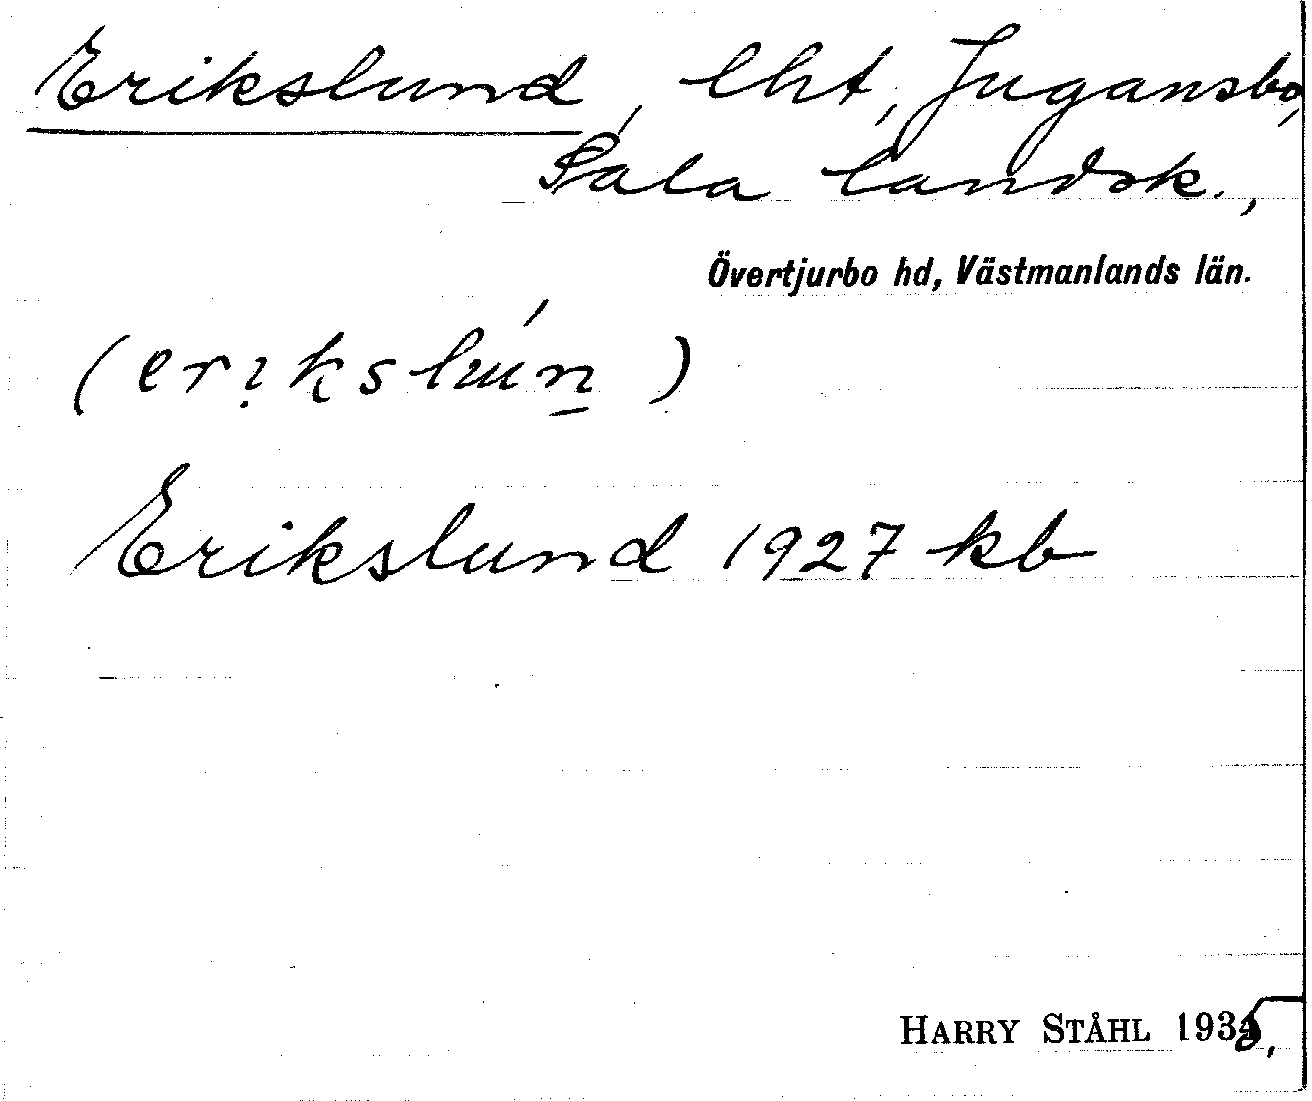 Erikslund, lht, Jugansbo,
Sala landsk.,
Övertjurbo hd, Västmanlands län.
(erikslun)
Erikslund 1927 kb
HARRY STÅHL 1935.